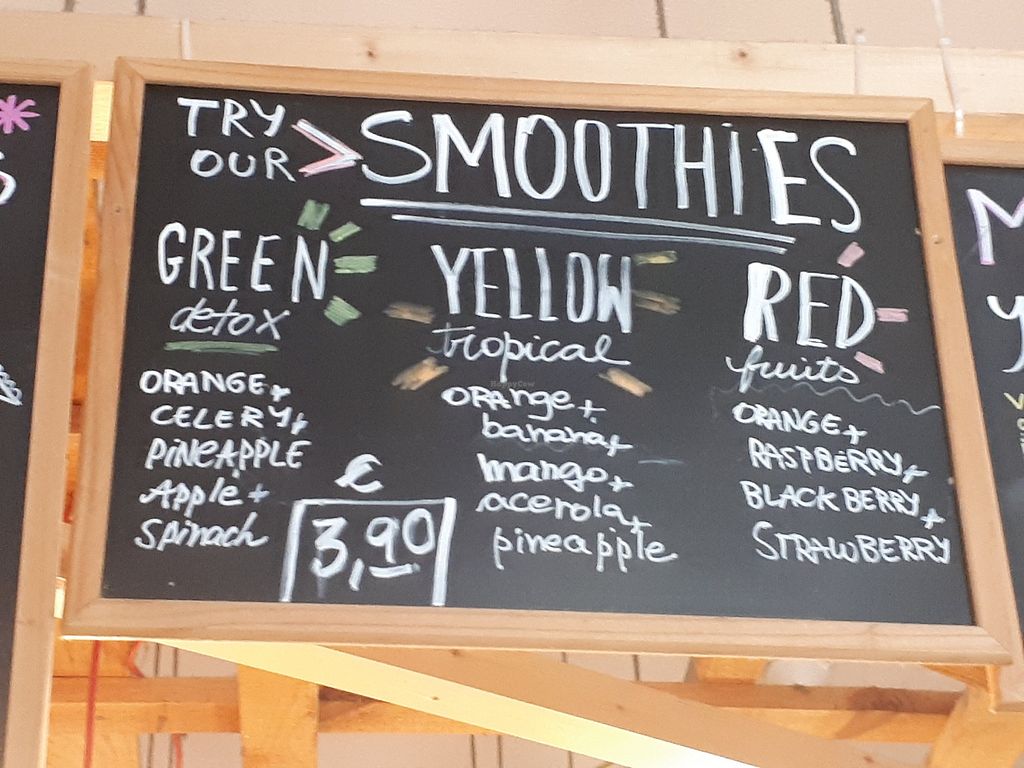 TRY
OUR
SMOOTHIES
GREEN
detox
ORANGE+
CELERY+
PINEAPPLE
Apple+
spinach
€
3,90
YELLOW
tropical
ORANge+
banana+
mango+
acerola+
pineapple
RED
fruits
ORANGE+
RASPBERRY+
BLACKBERRY+
STRAWBERRY